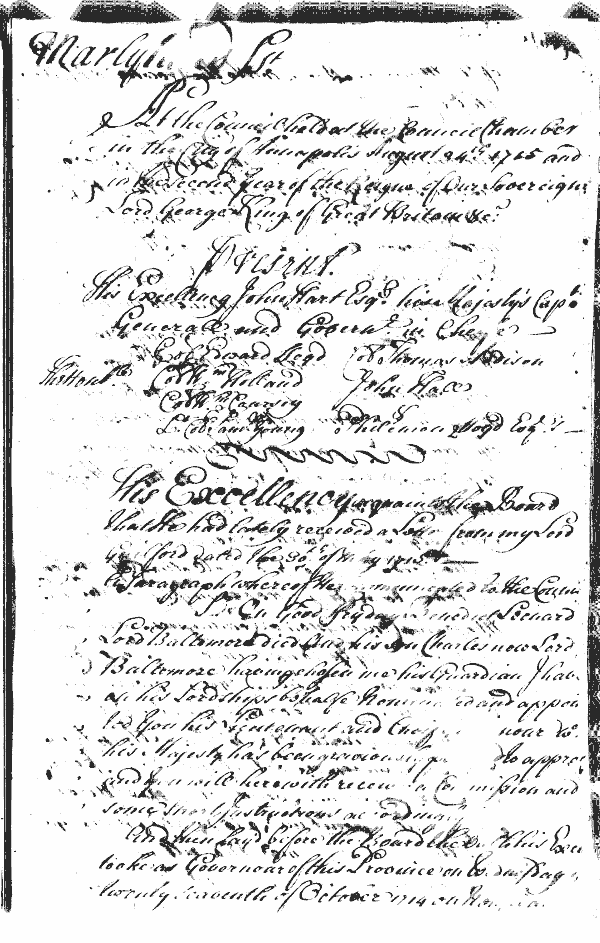 Maryl St
At the Council held at the Council Chamber
in the City of Annapolis August 24th 1715 and
in the second Year of the Reigne of Our Sovereign
Lord George King of Great Britain &c
Present.
His Excellency John Hart Esqr his Majesty's Capt
Generall and Governr in Cheife
Col Edward Lloyd Col Thomas Addison
Col Wm Holland John Hall
Col
Lt Col Saml Young Philemon Lloyd Esqrs
His Excellency acquaints the Board
that he had lately received a Letter from my Lord
Guilford dated the 30th of May 1715
a Paragraph whereof he communicated to the Councill
Sr On Good fryday Benedict Leonard
Lord Baltemore died and his son Charles now Lord
Baltemore having chosen me his Guardian I have
on his Lordship's behalfe Nominated and appoin
ted You his Lieutenant and Cheif nour to
his Majesty has been graciously to approv
and you will herewith receive a Com mission and
some short Instructions accordingly
And then lay'd before the Board the Oath his Exce
tooke as Governour of this Province on
twenty seaventh of October 1714